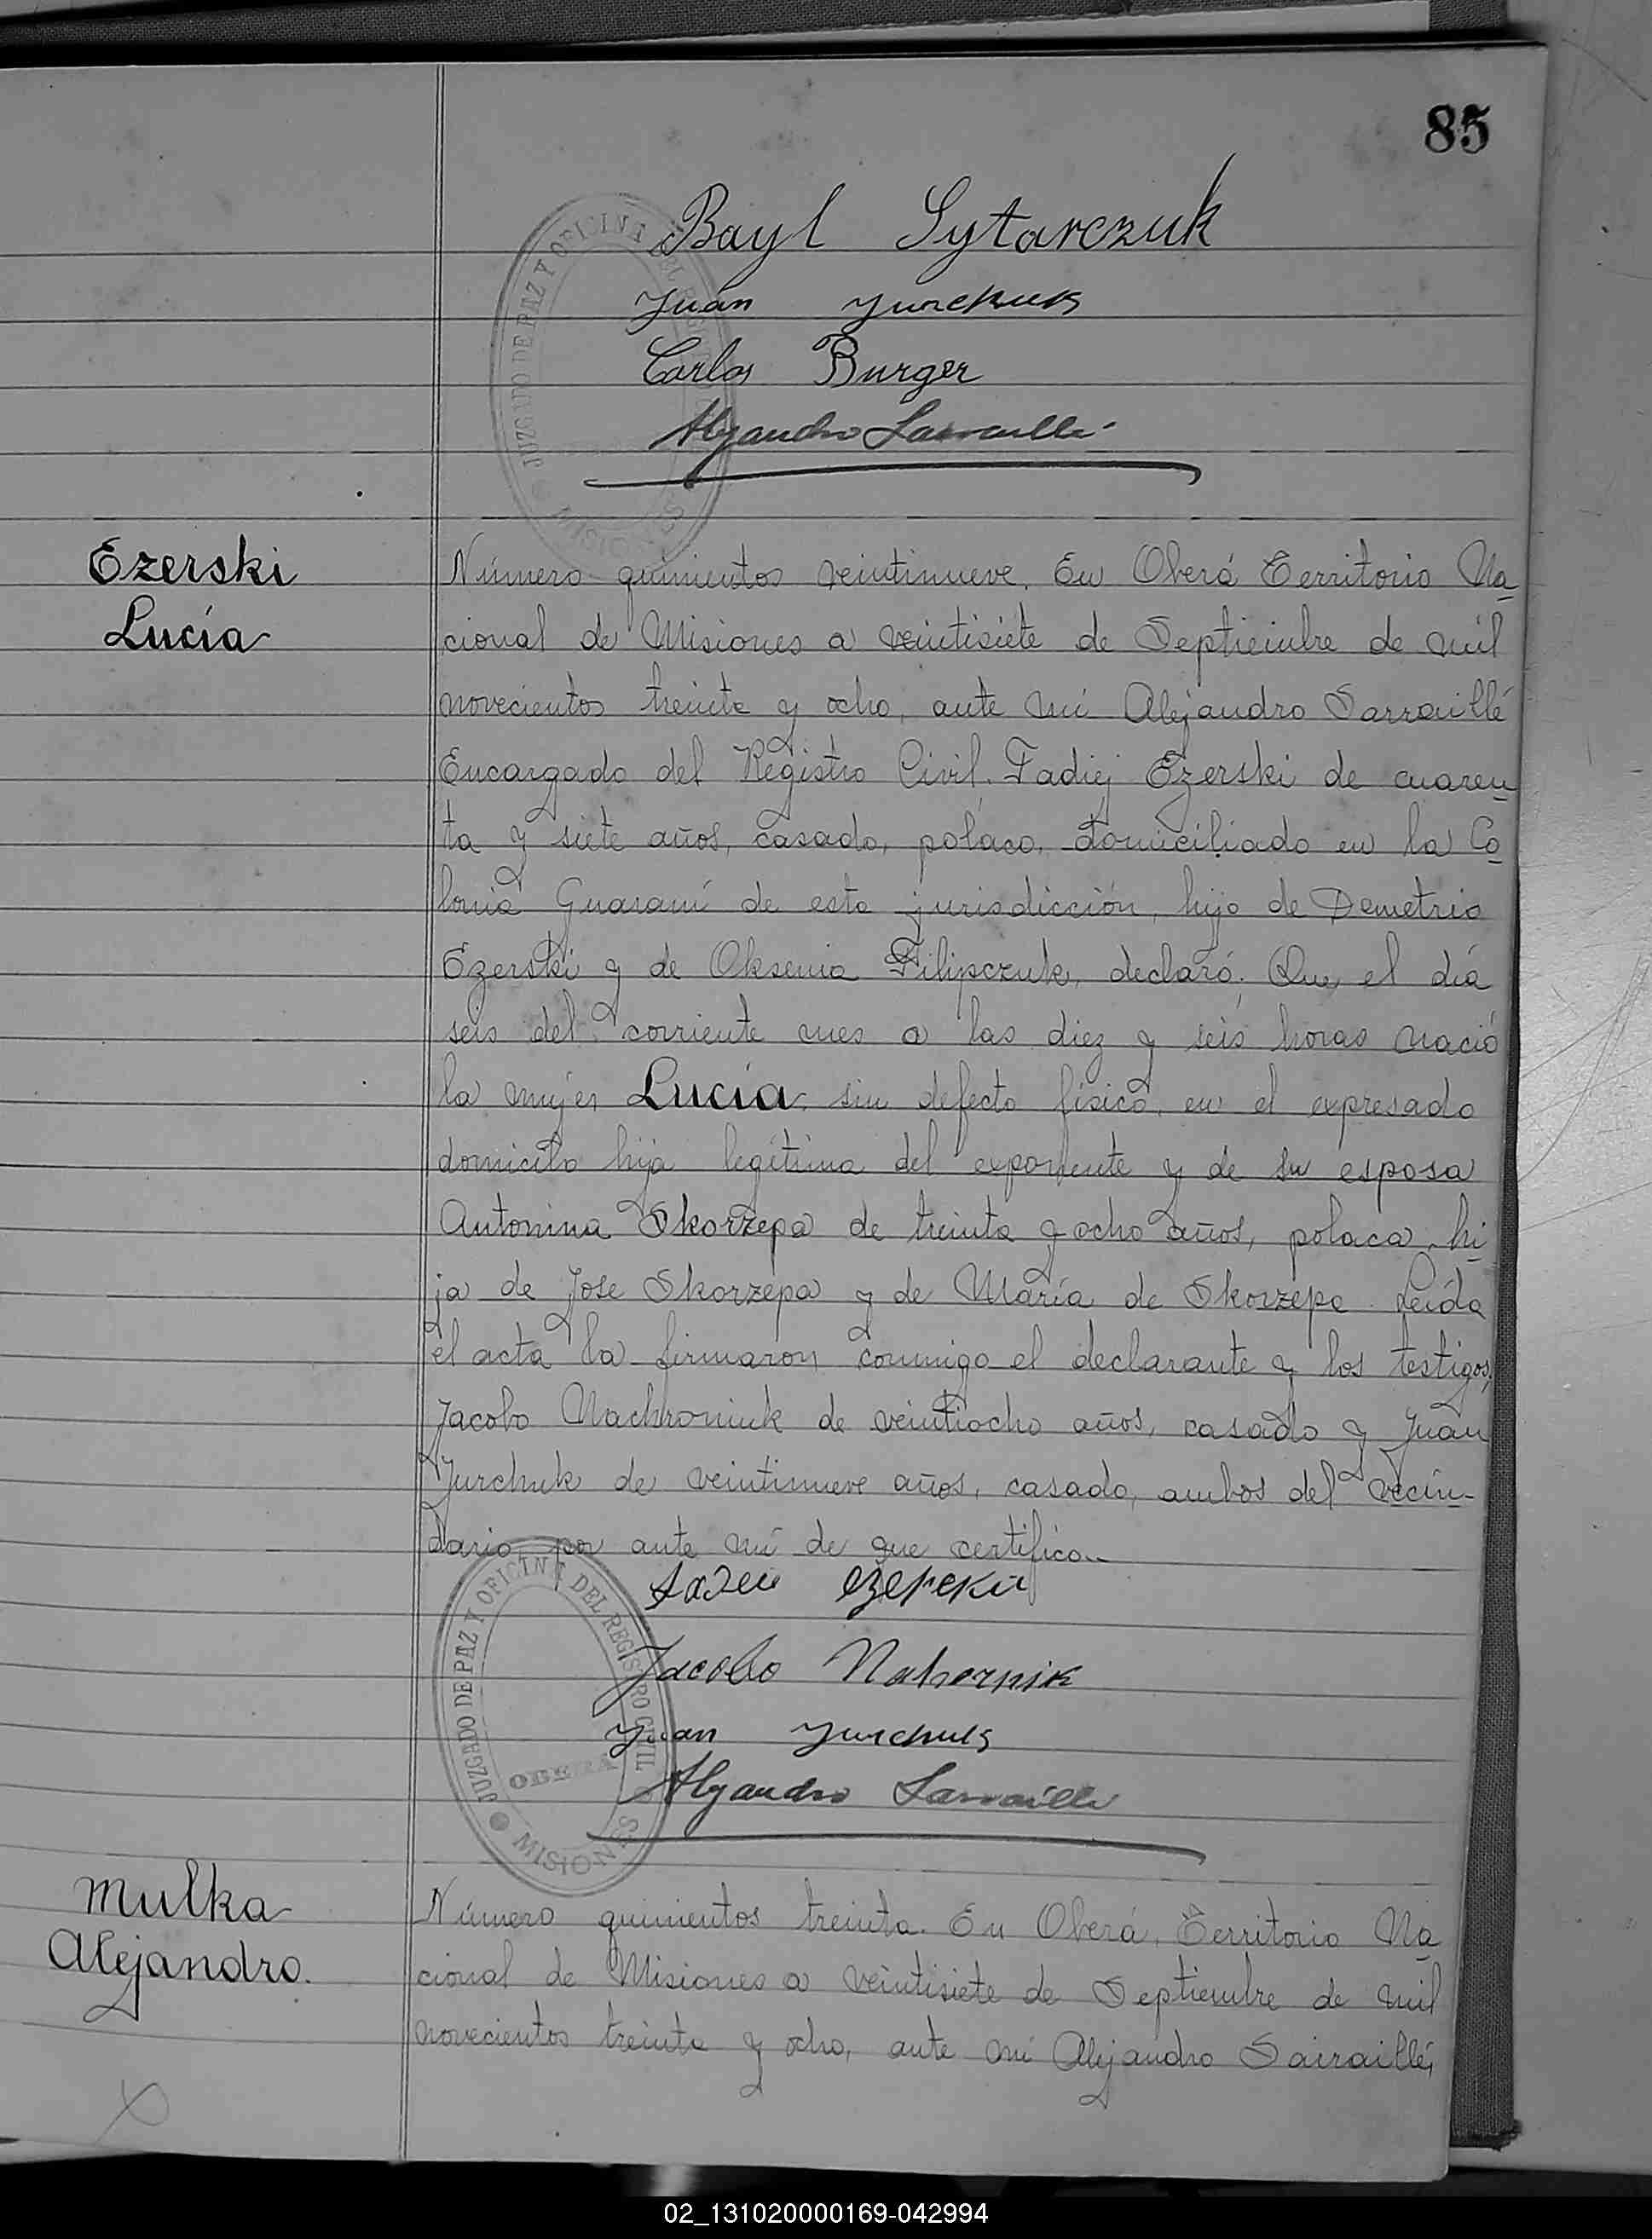 85
Bayl Sytarczuk
Juán Jurchuk
Carlos Burger
Alejandro Sarraillé
JUZGADO DE PAZ Y OFICINA DEL
MISIONES
Ezerski
Lucía
Número quinientos veintinueve. En Oberá Territorio Na
cional de Misiones a veintisiete de Septiembre de mil
novecientos treinta y ocho, ante mí Alejandro Sarraillé
Encargado del Registro Civil. Tadiej Ezerski de cuaren
ta y siete años, casado, polaco, domiciliado en la Co
lonia Guaraní de esta jurisdicción, hijo de Demetrio
Ezerski y de Oksenia Filipczuk, declaró: Que el día
seis del corriente mes a las diez y seis horas nació
la mujer Lucía, sin defecto físico, en el expresado
domicilo hija legítima del exponente y de su esposa
Antonina Skorzepa de treinta y ocho años, polaca, hi
ja de Jose Skorzepa y de María de Skorzepa. Leída
el acta la firmaron conmigo el declarante y los testigos,
Jacobo Nachroniuk de veintiocho años, casado y Juan
Jurchuk de veintinueve años, casado, ambos del vecin-
dario, por ante mí de que certifico.-
Jacobo Nahornik
Juan Jurchuk
Alejandro Sarraillé
JUZGADO DE PAZ Y OFICINA DEL REGISTRO CIVIL
OBERÁ
MISIONES
Mulka
Alejandro.
Número quinientos treinta. En Oberá, Territorio Na
cional de Misiones a veintisiete de Septiembre de mil
novecientos treinta y ocho, ante mí Alejandro Sarraillé,
02_131020000169-042994